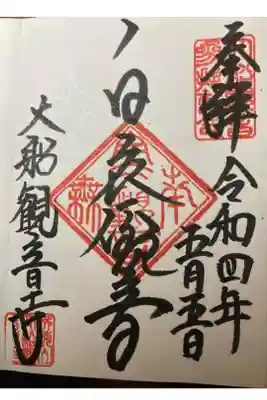 奉拝 令和四年
五月五日
白衣観音
大船観音寺